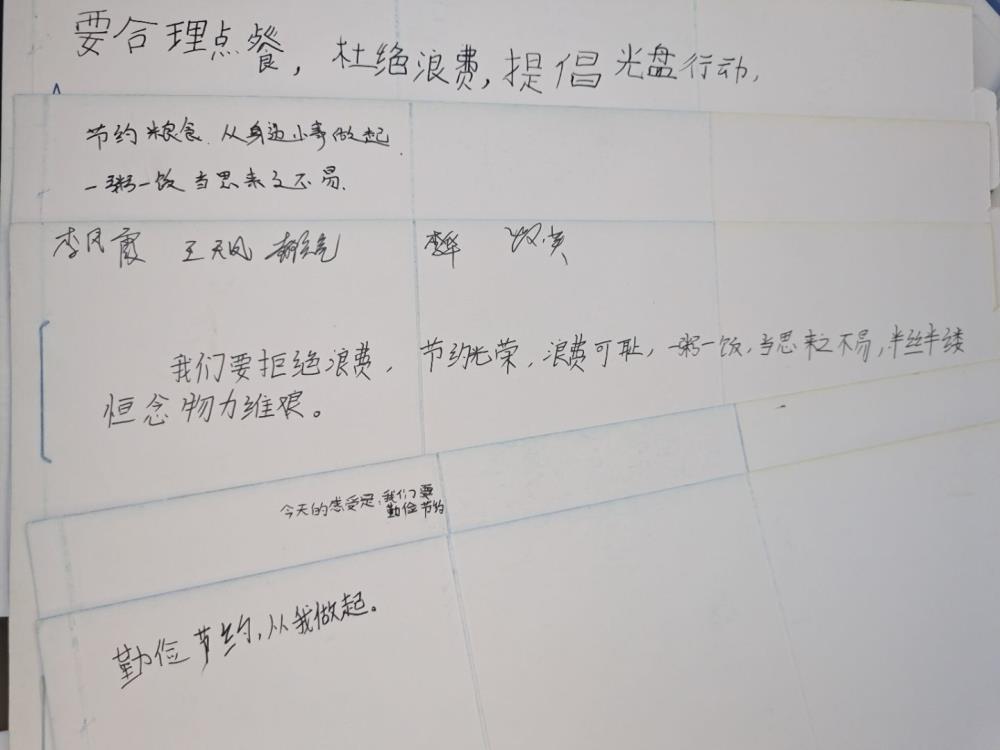 要合理点餐，杜绝浪费，提倡光盘行动，
节约粮食.从身边小事做起.
一粥一饭 当思来之不易.
李凤霞 王天凤
我们要拒绝浪费，节约光荣，浪费可耻，一粥一饭，当思来之不易，半丝半缕
恒念物力维艰。
今天的感受是：我们要
勤俭节约
勤俭节约，从我做起。